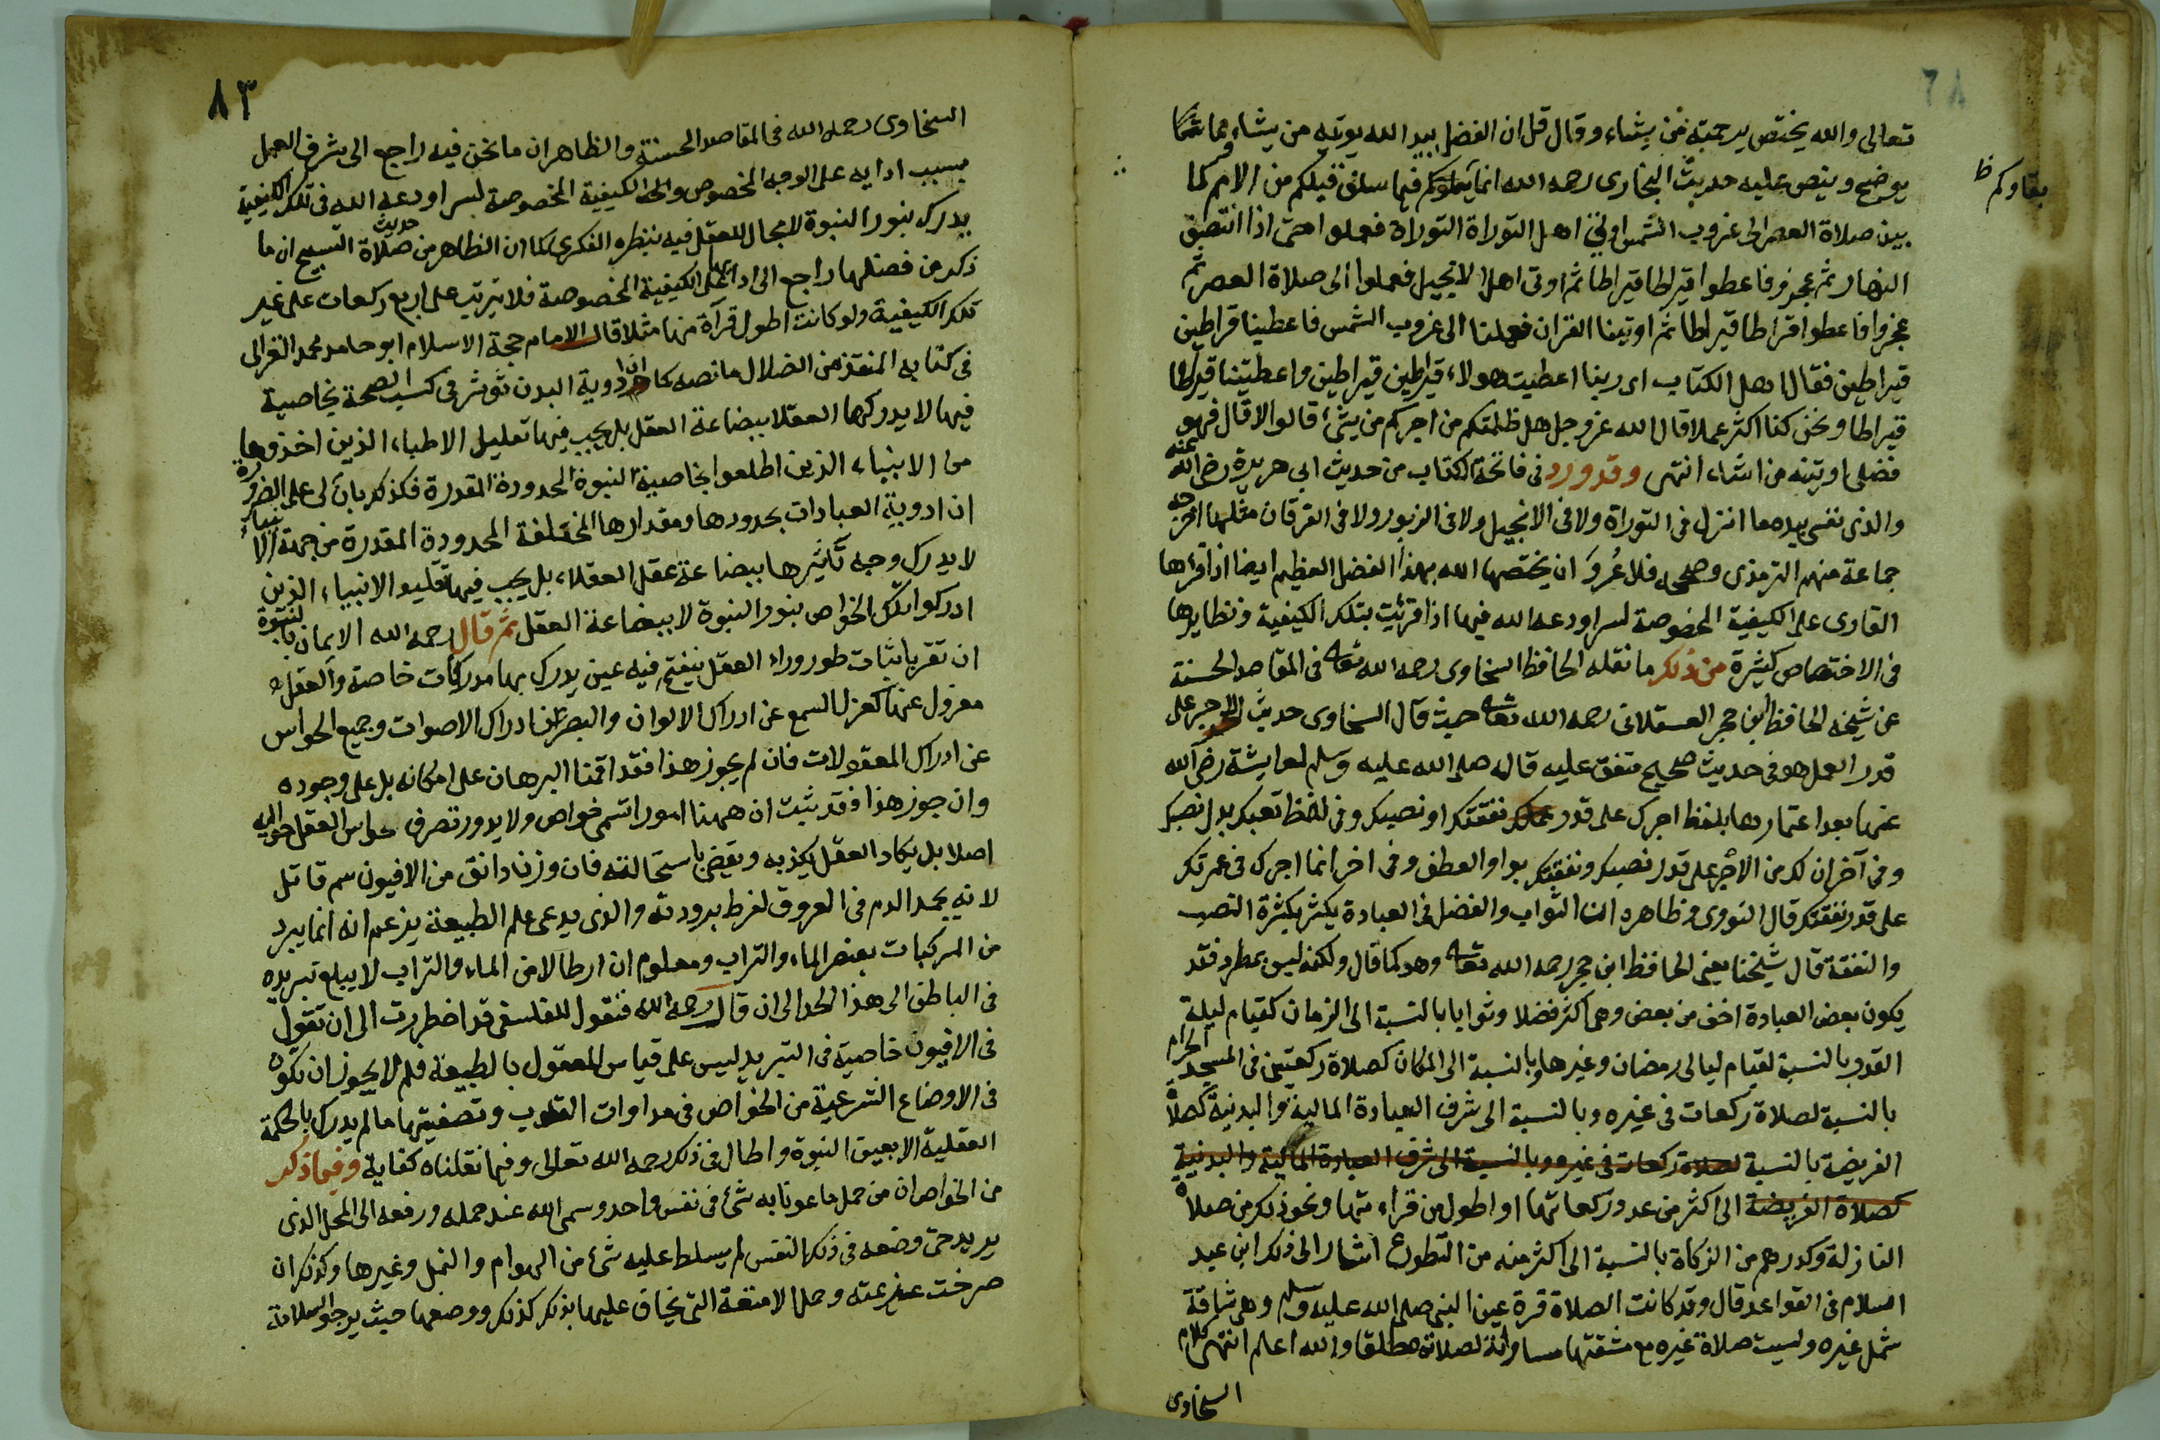 ٦٨
تعالى والله يختص برحمته من يشاء وقال قل ان الفضل بيد الله يوتيه من يشاء ومما
يوضح وينص عليه حديث البخارى رحمه الله انما بقاوكم فيما سلف قبلكم من الامم كما
بقاوكم ظ
بين صلاة العصر الى غروب الشمس اوتى اهل التوراة التوراة فعملوا حتى اذا انتصف
النهار ثم عجزوا فاعطوا قيراطا قيراطا ثم اوتى اهل الانجيل فعملوا الى صلاة العصر ثم
عجزوا فاعطوا قراطا قيراطا ثم اوتينا القران فعملنا الى غروب الشمس فاعطينا قراطين
قيراطين فقال اهل الكتاب اى ربنا اعطيت هولاء قيراطين قيراطين واعطيتنا قيراطا
قيراطا ونحن كنا اكثر عملا قال الله عز وجل هل ظلمتكم من اجركم من شئ قالوا لا قال فهو
فضلى اوتيه من اشاء انتهى وقد ورد فى فاتحة الكتاب من حديث ابى هريرة رضى الله عنه
والذى نفسى بيده ما انزل فى التوراة ولا فى الانجيل ولا فى الزبور ولا فى الفرقان مثلها اخرجه
جماعة منهم الترمذى وصححه فلا غرو ان يختصها الله بهذا الفضل العظيم ايضا اذا قرأها
القارى على الكيفية المخصوصة لسر اودعه الله فيها اذا قرئت بتلك الكيفية ونظايرها
فى الاختصاص كثيرة من ذلك ما نقله الحافظ السخاوى رحمه الله تعالى فى المقاصد الحسنة
عن شيخه الحافظ ابن حجر العسقلانى رحمه الله تعالى حيث قال السخاوى حديث الاجر على
قدر العمل هو فى حديث صحيح متفق عليه قاله صلى الله عليه وسلم لعايشة رضى الله
عنها بعد اعتمارها بلفظ اجرك على قدر عملك نفقتك او نصبك وفى لفظ تعبك بدل نصبك
وفى آخر ان لك من الاجر على قدر نصبك ونفقتك بواو العطف وفى اخر انما اجرك فى عمرتك
على قدر نفقتك قال النووى وظاهره ان الثواب والفضل فى العبادة يكثر بكثرة النصب
والنفقة قال شيخنا يعنى الحافظ ابن حجر رحمه الله تعالى وهو كما قال ولكنه ليس بمطرد فقد
يكون بعض العبادة اخف من بعض وهى اكثر فضلا وثوابا بالنسبة الى الزمان كقيام ليلة
القدر بالنسبة لقيام ليالى رمضان وغيرها وبالنسبة الى المكان كصلاة ركعتين فى المسجد الحرام
بالنسبة لصلاة ركعات فى غيره وبالنسبة الى شرف العبادة المالية والبدنية كصلاة
الفريضة بالنسبة لصلاة ركعات فى غيره وبالنسبة الى شرف العبادة المالية والبدنية
كصلاة الفريضة الى اكثر من عدد ركعاتها او اطول من قراءتها ونحو ذلك من صلاة
النازلة وكدرهم من الزكاة بالنسبة الى اكثر منه من التطوع اشار الى ذلك ابن عبد
السلام فى القواعد قال وقد كانت الصلاة قرة عين النبى صلى الله عليه وسلم وهى شاقة
على غيره وليست صلاة غيره مع مشقتها مساوية لصلاته مطلقا والله اعلم انتهى كلام
السخاوى
٨٣
السخاوى رحمه الله فى المقاصد الحسنة والظاهر ان ما نحن فيه راجع الى شرف العمل
بسبب ادايه على الوجه المخصوص والكيفية المخصوصة لسر اودعه الله فى تلك الكيفية
يدرك بنور النبوة لا مجال للعقل فيه بنظره الفكرى كما ان الظاهر من حديث صلاة التسبيح ان ما
ذكر من فضلها راجع الى ادائها على الكيفية المخصوصة فلا يترتب على اربع ركعات على غير
تلك الكيفية ولو كانت اطول قرآة منها مثلا قال الامام حجة الاسلام ابو حامد محمد الغزالى
فى كتابه المنقذ من الضلال ما نصه كما ان ادوية البدن تؤثر فى كسب الصحة بخاصية
فيها لا يدركها العقلا ببضاعة العقل بل يجب فيها تقليد الاطباء الذين اخذوها
من الانبياء الذين اطلعوا بخاصية النبوة المحدودة المقدرة فكذلك بان لى على الضرورة
ان ادوية العبادات بحدودها ومقدارها المختلفة المحدودة المقدرة من جهة الانبياء
لا يدرك وجه تأثيرها ببضاعة عقل العقلاء بل يجب فيها تقليد الانبياء الذين
ادركوا تلك الخواص بنور النبوة لا ببضاعة العقل ثم قال رحمه الله الايمان بالنبوة
ان تقر باثبات طور وراء العقل ينفتح فيه عين يدرك بها مدركات خاصة والعقل
معزول عنها كعزل السمع عن ادراك الالوان والبصر عن ادراك الاصوات وجميع الحواس
عن ادراك المعقولات فان لم يجوز هذا فقد اقمنا البرهان على امكانه بل على وجوده
وان جوز هذا فقد ثبت ان ههنا امورا تسمى خواص ولا يدور تصرف حواس العقل حواليها
اصلا بل يكاد العقل يكذبه ويقضى باستحالته فان وزن دانق من الافيون سم قاتل
لانه يجمد الدم فى العروق لفرط برودته والذى يدعى علم الطبيعة يزعم انه انما يبرد
من المركبات بعنصر الماء والتراب ومعلوم ان ارطالا من الماء والتراب لا يبلغ تبريده
فى الباطن الى هذا الحد الى ان قال رحمه الله فنقول للفلسفى قد اضطررت الى ان تقول
فى الافيون خاصية فى التبريد ليس على قياس المعقول بالطبيعة فلم لا يجوز ان تكون
فى الاوضاع الشرعية من الخواص فى مداوات القلوب وتصفيتها ما لم يدرك بالحكمة
العقلية الا بعين النبوة واطال فى ذلك رحمه الله تعالى وفيما نقلناه كفاية وفيما ذكر
من الخواص ان من حمل ماعونا به شئ فى نفس واحد وسمى الله عند حمله ورفعه الى المحل الذى
يريد حتى وضعه فى ذلك النفس لم يسلط عليه شئ من الهوام والنمل وغيرها وكذلك ان